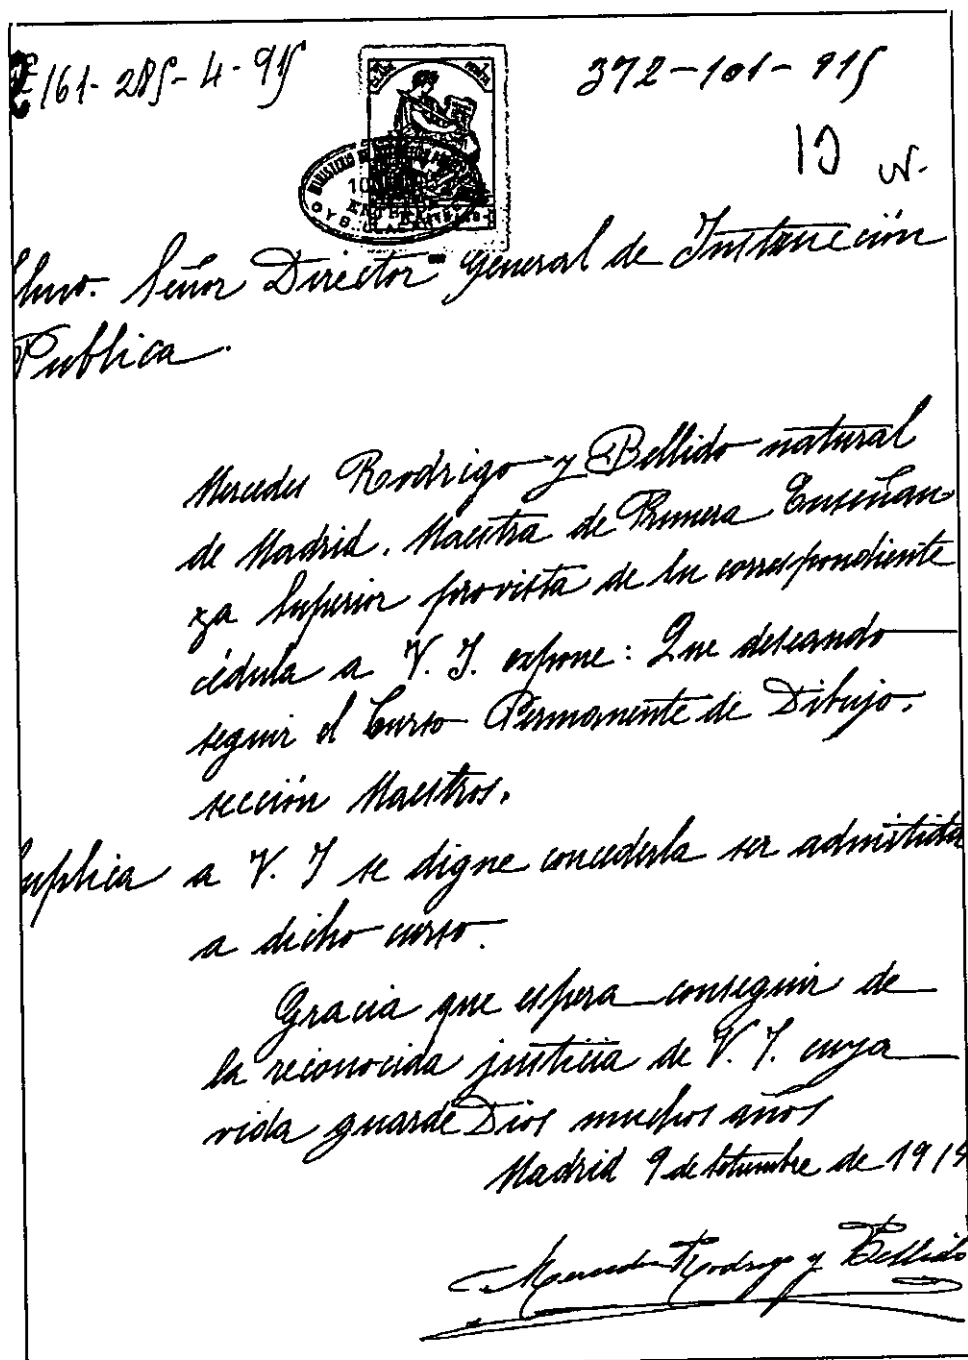 161-285-4-915
372-101-915
Ilmo. Señor Director General de Instrucción
Publica.
Mercedes Rodrigo y Bellido natural
de Madrid. Maestra de Primera Enseñan
za Superior provista de su correspondiente
cédula a V. I. expone: Que deseando
seguir el Curso Permanente de Dibujo.
sección Maestros.
Suplica a V. I se digne concederla ser admitida
a dicho curso.
Gracia que espera conseguir de
la reconocida justicia de V. I. cuya
vida guarde Dios muchos años
Madrid 9 de setiembre de 1915
Mercedes Rodrigo y Bellido